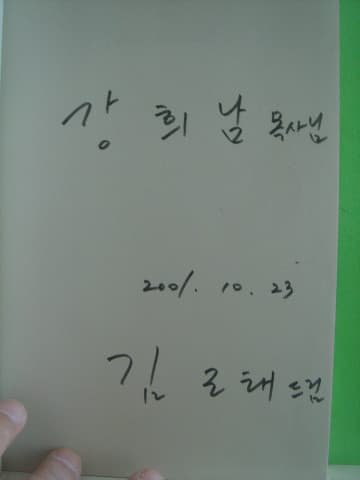 강 희 남 목사님
2001. 10. 23
김 근 태 드림